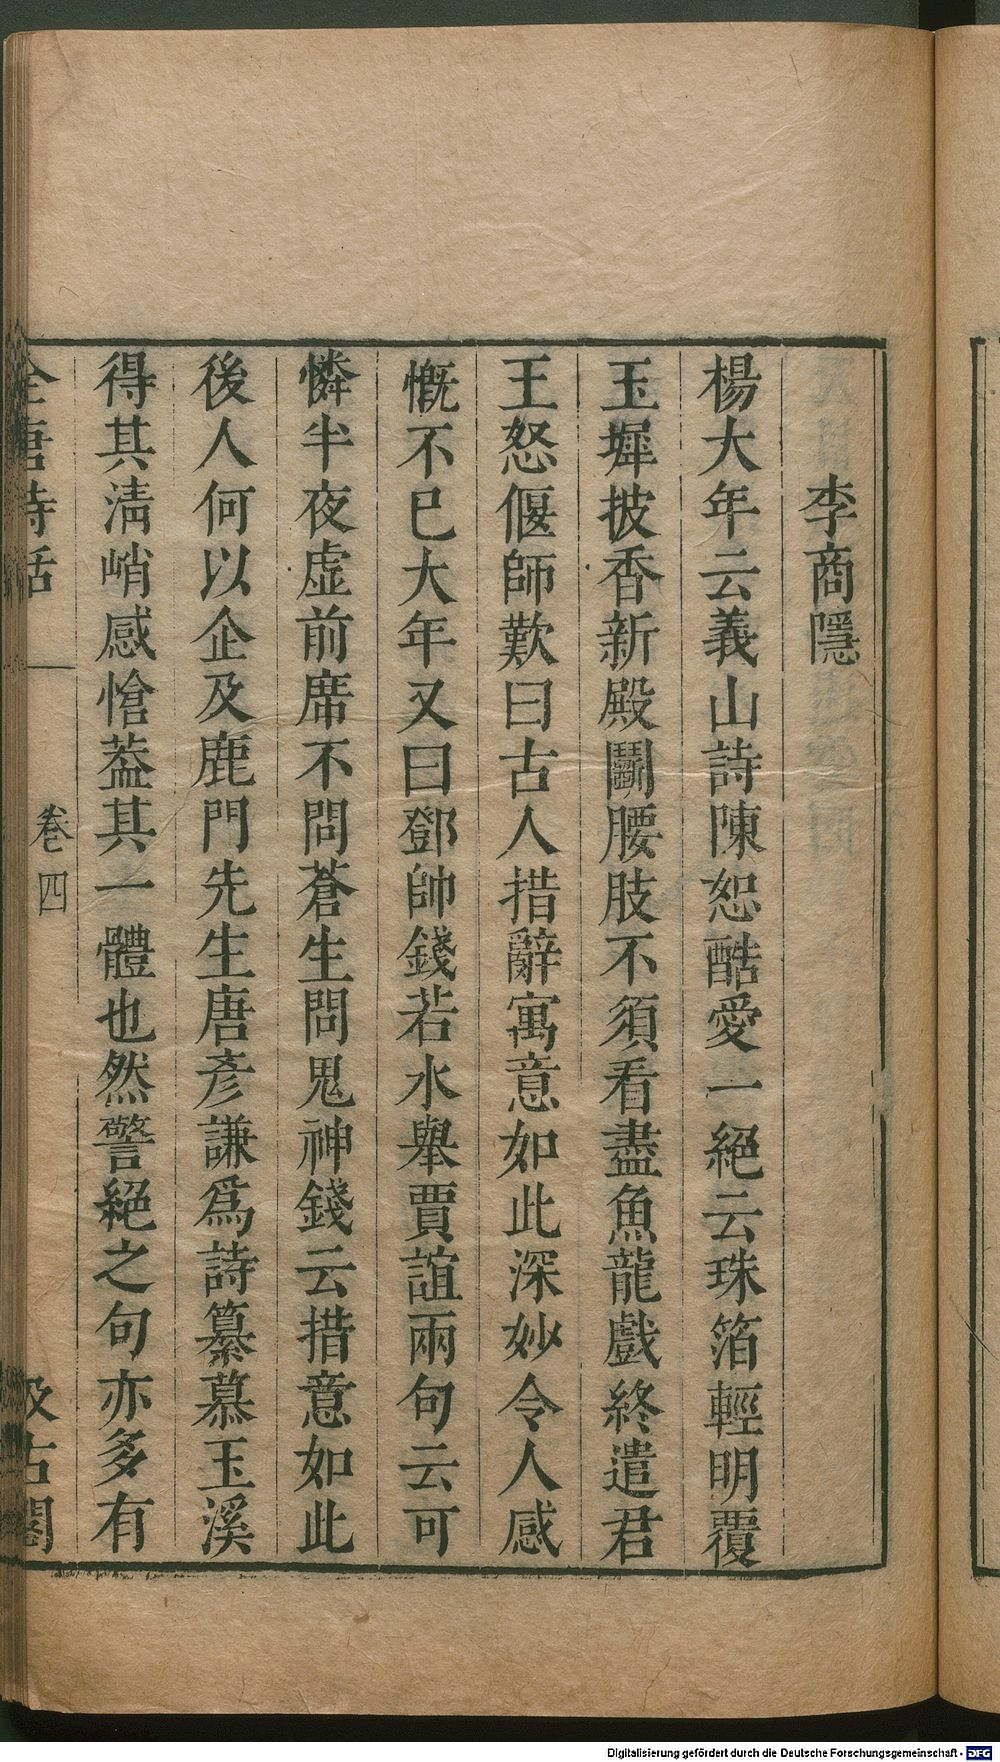 李商隱
楊大年云義山詩陳恕酷愛一絕云珠箔輕明覆
玉墀披香新殿鬭腰肢不須看盡魚龍戲終遣君
王怒偃師歎曰古人措辭寓意如此深妙令人感
慨不已大年又曰鄧帥錢若水舉賈誼兩句云可
憐半夜虛前席不問蒼生問鬼神錢云措意如此
後人何以企及鹿門先生唐彥謙爲詩纂慕玉溪
得其清峭感愴葢其一體也然警絕之句亦多有
全唐詩話 卷四 汲古閣
Digitalisierung gefördert durch die Deutsche Forschungsgemeinschaft - DFG